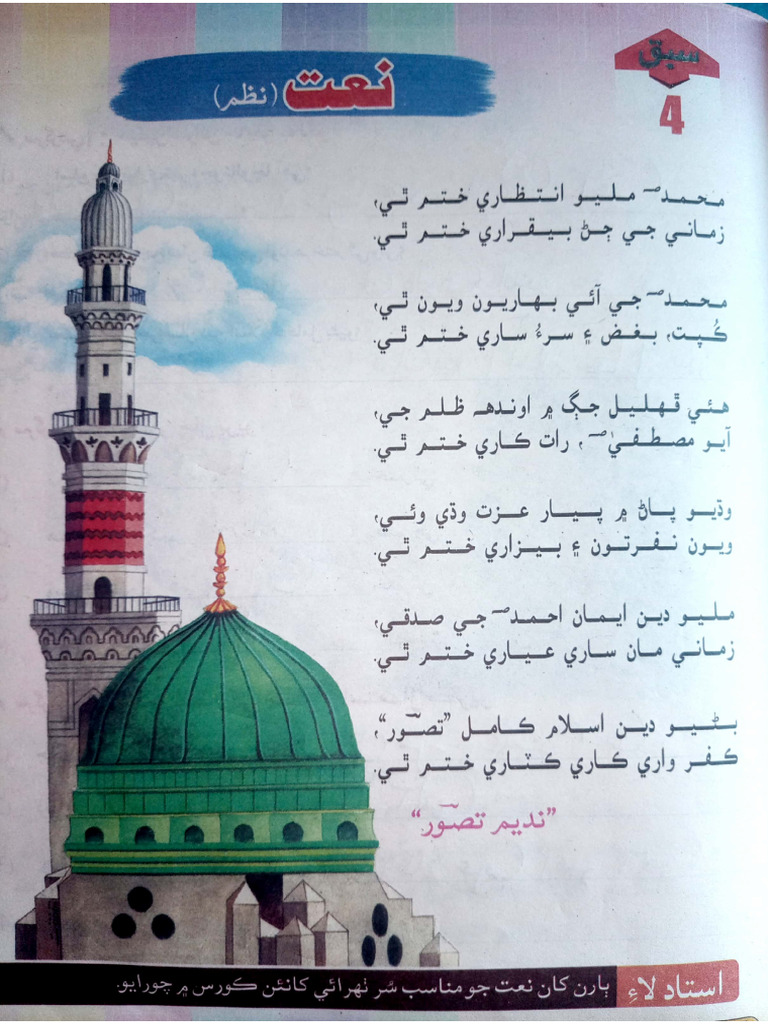 سبق
4
نعت (نظم)
محمدﷺ مليو انتظاري ختم ٿي،
زماني جي ڄڻ بيقراري ختم ٿي.
محمدﷺ جي آئي بهاريون ويون ٿي،
ڪُپت، بغض ۽ سرءُ ساري ختم ٿي.
هئي ڦهليل جڳ ۾ اونده ظلم جي،
آيو مصطفيٰﷺ، رات ڪاري ختم ٿي.
وڌيو پاڻ ۾ پيار عزت وڌي وئي،
ويون نفرتون ۽ بيزاري ختم ٿي.
مليو دين ايمان احمدﷺ جي صدقي،
زماني مان ساري عياري ختم ٿي.
بڻيو دين اسلام ڪامل ”تصوّر“،
ڪفر واري ڪاري ڪٽاري ختم ٿي.
”نديم تصوّر“
استاد لاءِ
ٻارن کان نعت جو مناسب سُر ٺهرائي کانئن ڪورس ۾ چورايو.